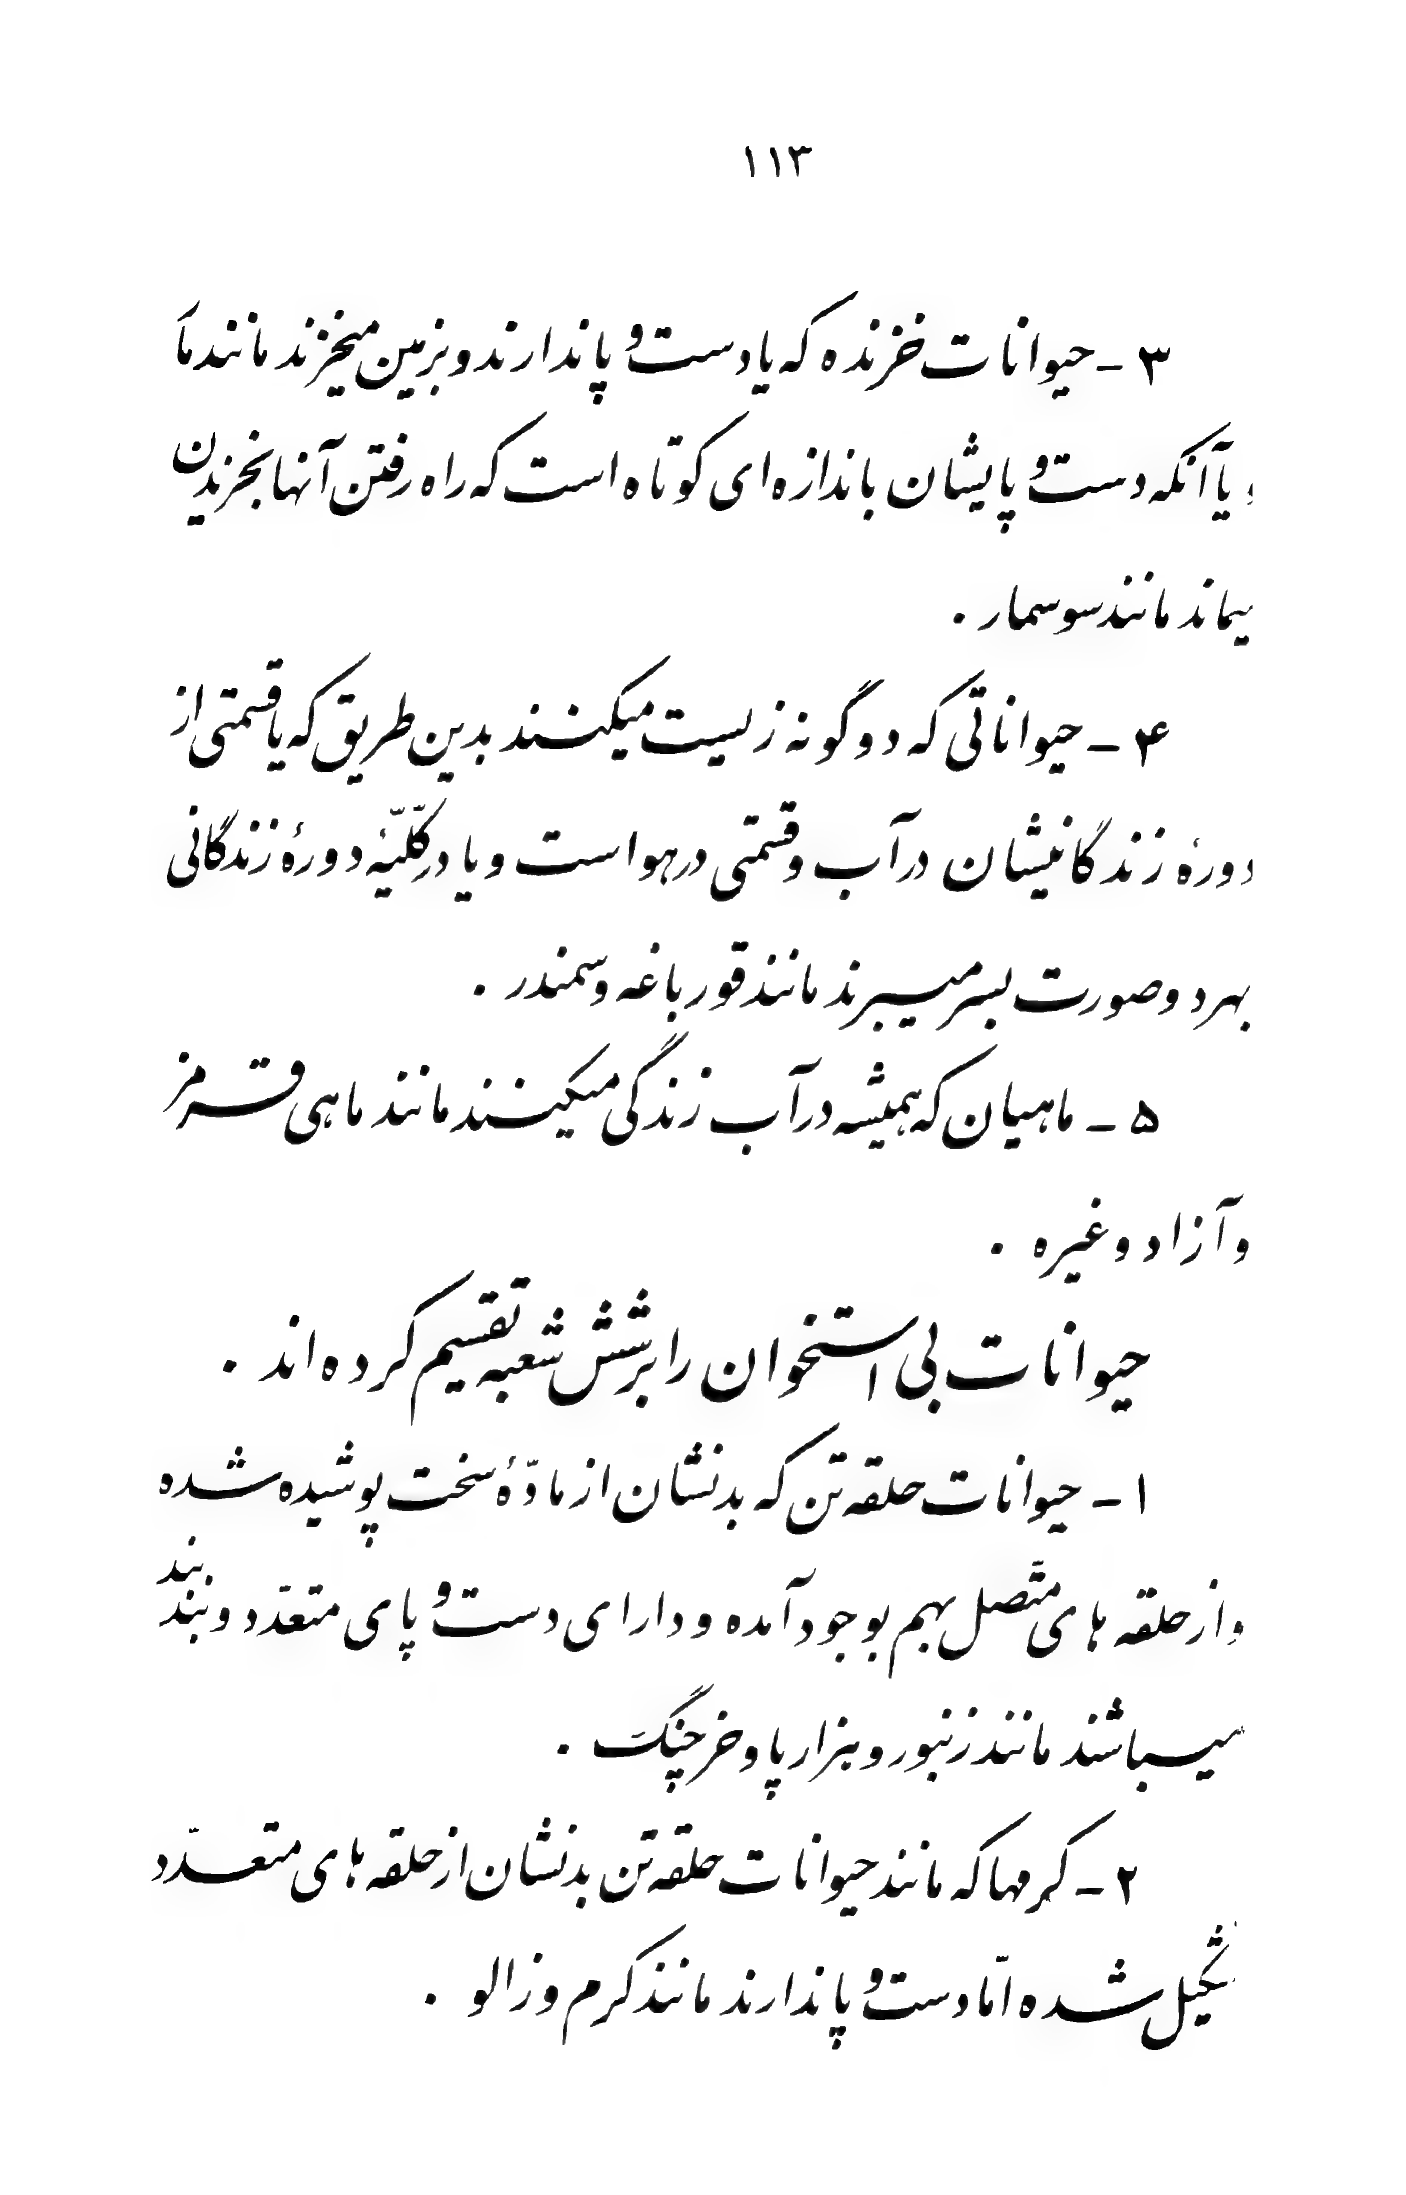 ۱۱۳
۳ - حیوانات خزنده که یا دست و پا ندارند و بر زمین میخزند مانند ما
و یا آنکه دست و پایشان باندازه‌ای کوتاه است که راه رفتن آنها بخزیدن
یماند مانند سوسمار .
۴ - حیواناتی که دو گونه زیست میکنند بدین طریق که یا قسمتی از
دورهٔ زندگانیشان در آب و قسمتی در هواست و یا در کلّیّهٔ دورهٔ زندگانی
بهر دو صورت بسر میبرند مانند قورباغه و سمندر .
۵ - ماهیان که همیشه در آب زندگی میکنند مانند ماهی قرمز
و آزاد و غیره .
حیوانات بی استخوان را بر شش شعبه تقسیم کرده‌اند .
۱ - حیوانات حلقه تن که بدنشان از مادّهٔ سخت پوشیده شده
و از حلقه های متّصل بهم بوجود آمده و دارای دست و پای متعدّد و بند بند
میباشند مانند زنبور و هزارپا و خرچنگ .
۲ - کرمها که مانند حیوانات حلقه تن بدنشان از حلقه های متعدّد
تشکیل شده امّا دست و پا ندارند مانند کرم و زالو .